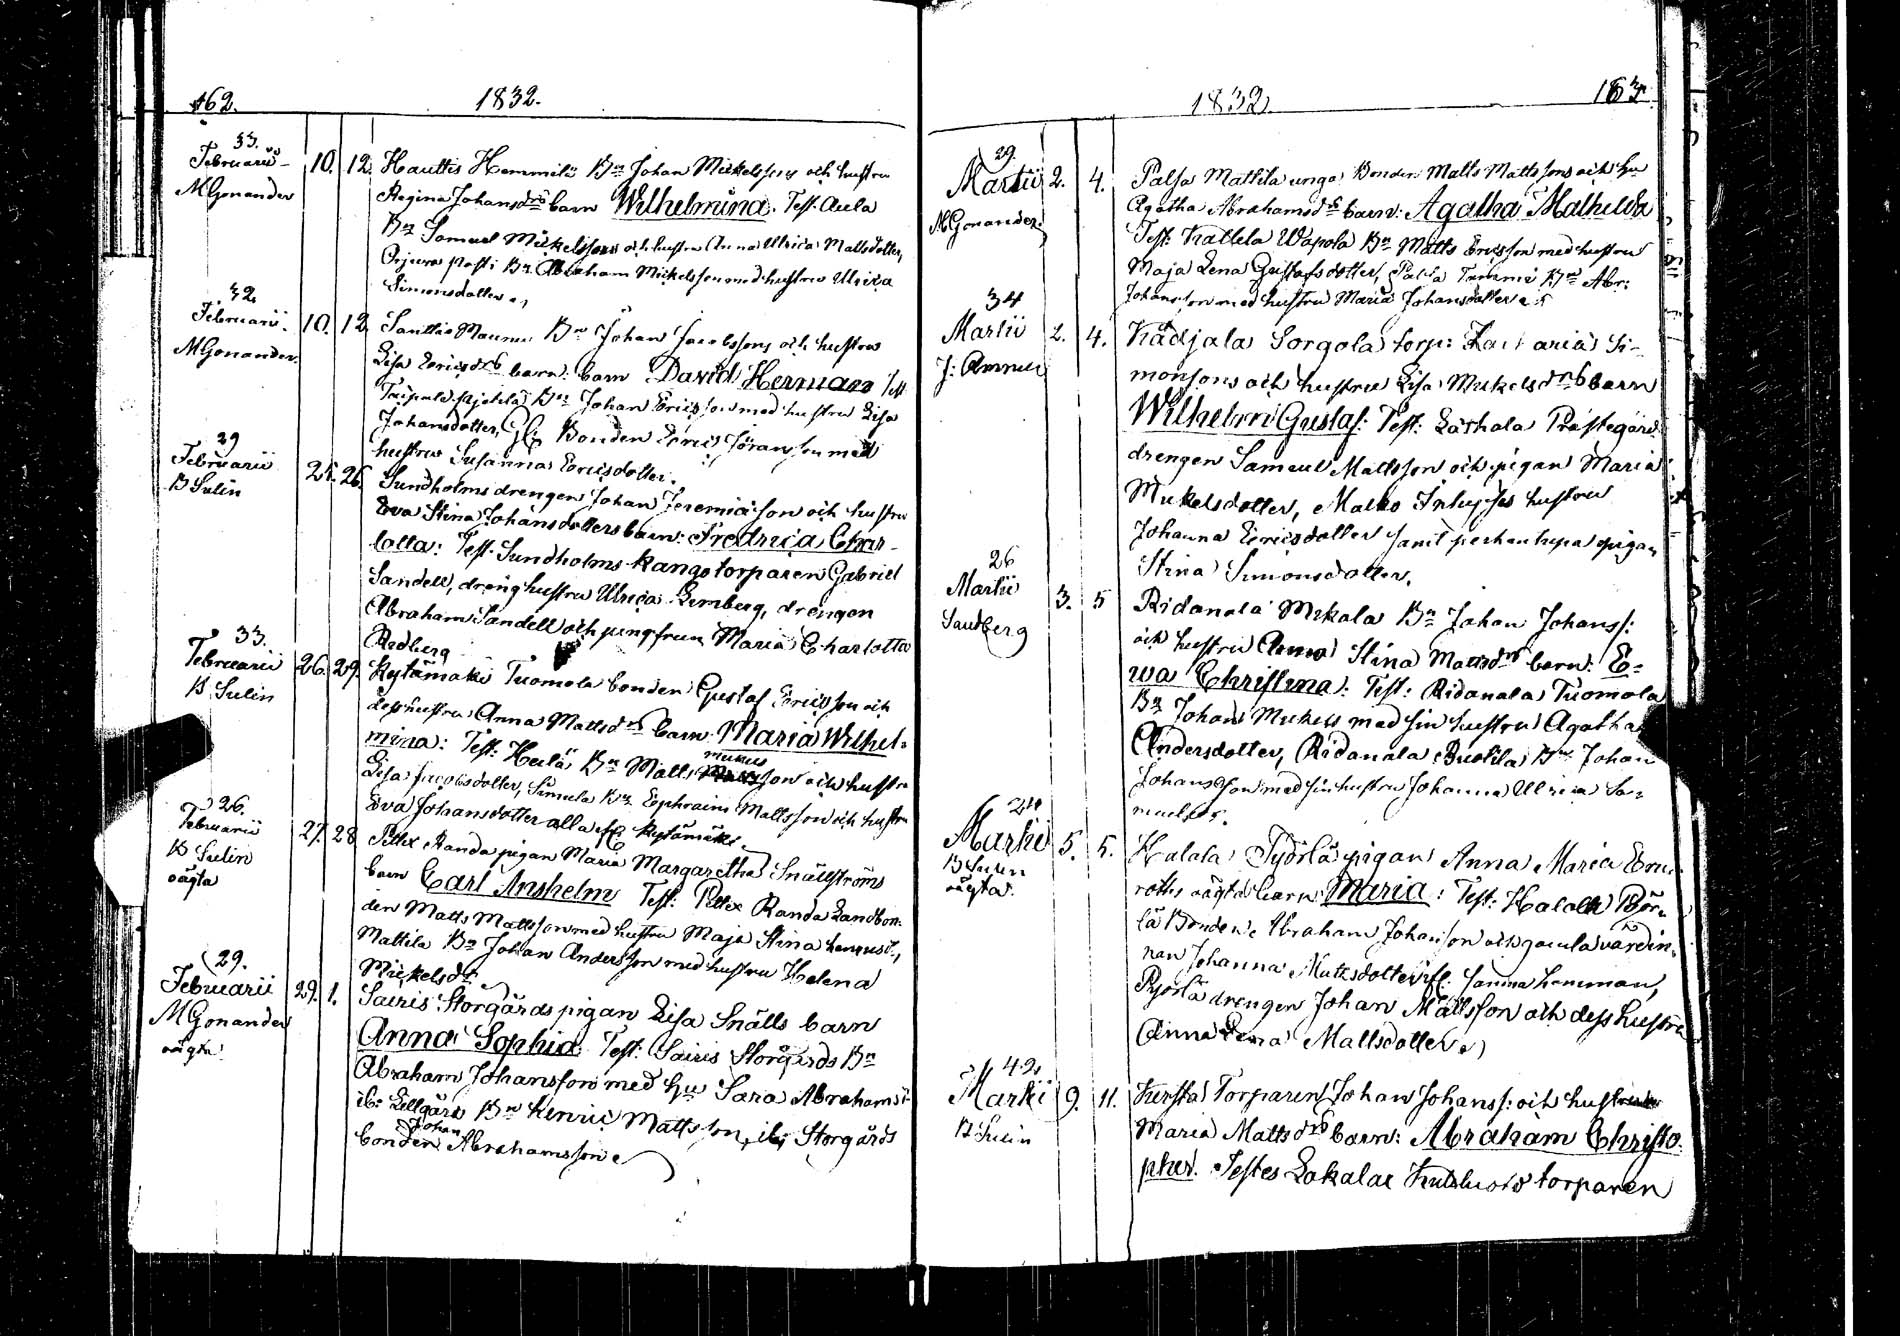 162.
1832.
33.
Februarii
MGonander
10. 12. Hauttis Hemmilä Bn Johan Mickelssons och hustru
Regina Johansdrs barn Wilhelmina. Test. Aula
Bn Samuel Mickelsson och hustru Anna Ulrica Mattsdotter,
Orjura Posti Bn Abraham Mickelsson med hustru Ulrica
Simonsdotter
32
Februarii.
MGonander.
10. 12. Santtio Maunu Bn Johan Jacobssons och hustrus
Lisa Ericsdrs barn: barn David Herman Test
Taipale Bn Johan Ericsson med hustru Lisa
Johansdotter, Bonden Eric Jöransson med
hustru Susanna Ericsdotter.
29
Februarii
B Sulin
25. 26. Sundholms drengen Johan Jeremiasson och hustru
Eva Stina Johansdotters barn: Fredrica Char-
lotta: Test. Sundholms Kangotorparen Gabriel
Sandell, dräng hustru Ulrica Lemberg, drengen
Abraham Sandell och jungfrun Maria Charlotta
Redberg
33.
Februarii
B Sulin
26. 29. Kytämäki Tuomola bonden Gustaf Ericsson och
dess hustru Anna Mattsdrs barn: Maria Wilhel-
mina: Test: Heulä Bn Matts Mickelsson och hustru
Lisa Jacobsdotter, Simula Bn Ephraim Mattsson och hustru
Eva Johansdotter alla fr. Kytämäki
26.
Februarii
B Sulin
oägta
27. 28 Pittex Randa pigan Maria Margaretha Snällströms
barn Carl Anshelm Test: Pittex Randa Landbon-
den Matts Mattsson med hustru Maja Stina henricsd.,
Mattila Bn Johan Andersson med hustru Helena
Mickelsdr
29.
Februarii
MGonander
oägta
29. 1. Sairis Storgårds pigan Lisa Snälls barn
Anna Sophia: Test: Sairis Storgårds Bn
Abraham Johansson med Hu Sara Abrahamsd.
ib: Lillgård Bn Henric Mattsson, ib; Storgårds
bonden Johan Abrahamsson
1832.
163.
29.
Martii
MGonander.
2. 4. Palsa Mattila unga Bonden Matts Mattssons och Hu
Agatha Abrahamsdrs barn: Agatha Mathilda
Test: Kallela Wapola Bn Matts Ericsson med hustru
Maja Lena Gustafsdotter, Palsa Bn Abr:
Johansson med hustru Maria Johansdotter
34
Martii
2. 4. Kadjala Sorgola torp: Zacharia Si-
monsons och hustru Lisa Mickelsdrs barn
Wilhelm Gustaf: Test: Prästegård
drengen Samuel Mattsson och pigan Maria
Mickelsdotter, Malko hustru
Johanna Ericsdotter samt pigan
Stina Simonsdotter.
26
Martii
Sandberg
3. 5 Ridanala Mikala Bn Johan Johanss:
och hustru Anna Stina Mattsdrs barn: E-
wa Christina: Test: Ridanala Tuomola
Bn Johan Mickels med sin hustru Agatha
Andersdotter, Ridanala Bn Johan
Johansson med sin hustru Johanna Ulrica Sa-
muelsd.
24
Martii
B Sulin
oägta
5. 5. Halala pigan Anna Maria
oägta barn: Maria: Test: Halala
Bonden Abraham Johansson och gamla värdin-
nan Johanna Mattsdotter fr. samma hemman,
drengen Johan Mattsson och dess hustru
Anna Lena Mattsdotter
42
Martii
B Sulin
9. 11. Torparen Johan Johanss: och hustru
Maria Mattsdrs barn: Abraham Christo-
pher. Testes Lakalax torparen